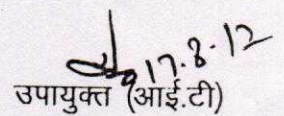 17.8.12
उपायुक्त (आई.टी)